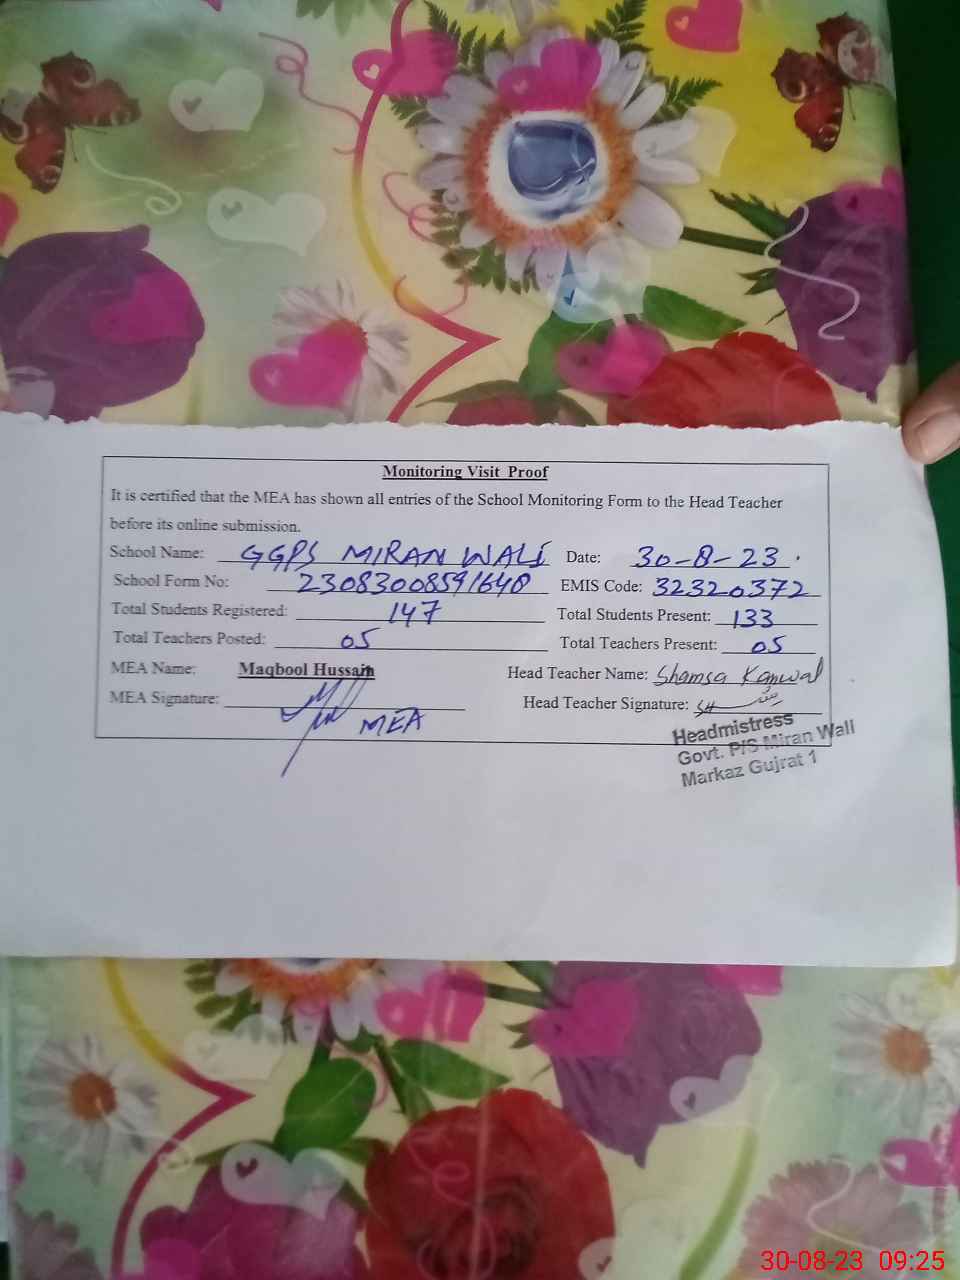 Monitoring Visit Proof
It is certified that the MEA has shown all entries of the School Monitoring Form to the Head Teacher
before its online submission.
School Name: GGPS MIRAN WALI Date: 30-8-23.
School Form No: 23083008591648 EMIS Code: 32320372
Total Students Registered: 147 Total Students Present: 133
Total Teachers Posted: 05 Total Teachers Present: 05
MEA Name: Maqbool Hussain Head Teacher Name: Shamsa Kanwal
MEA Signature: MEA Head Teacher Signature:
Headmistress
Govt. P/S Miran Wali
Markaz Gujrat 1
30-08-23 09:25